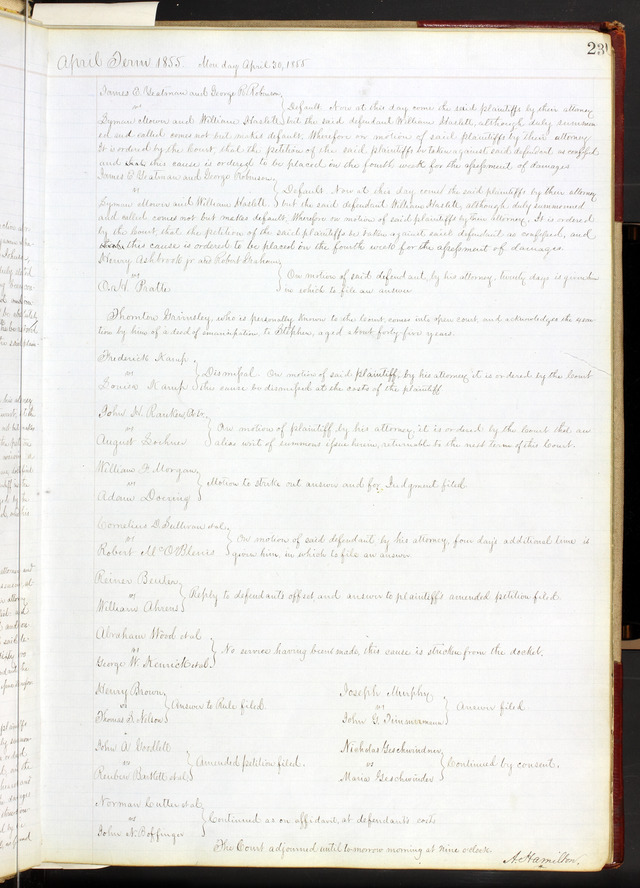 231
April Term 1855. Monday April 30, 1855
James E. Yeatman and George R. Robinson
vs
Lyman Mowris and William Haslett
Default. Now at this day come the said plaintiffs by their attorney
but the said defendant William Haslett, although duly summon
ed and called comes not but makes default. Wherefore on motion of said plaintiffs by their attorney
It is ordered by the court that the petition of the said plaintiffs be taken against said defendant as confessed
and this cause is ordered to be placed on the fourth week for the assessment of damages
James E. Yeatman and George Robinson
vs
Lyman Mowris and William Haslett
Default Now at this day comes the said plaintiffs by their attorney
but the said defendant William Haslett, although duly summoned
and called comes not but makes default, Wherefore on motion of said plaintiffs by their attorney. It is ordered
by the Court, that the petition of the said plaintiffs be taken against said defendant as confessed, and
this cause is ordered to be placed on the fourth week for the assessment of damages
Henry Ashbrook jr and Robert Graham
vs
Pratte
On motion of said defendant, by his attorney, twenty days is given him
in which to file an answer
Thornton Grimsley, who is personally known to the Court, comes into open court, and acknowledges the execu
tion by him of a deed of emancipation to Stephen, aged about forty five years.
Frederick Kamp
vs
Louisa Kamp
Dismissal. On motion of said plaintiff, by his attorney it is ordered by the Court
the cause be dismissed at the costs of the plaintiff
John H. Rankin,
vs
August Lochner
On motion of plaintiff, by his attorney, it is ordered by the Court that an
alias writ of summons issue herein, returnable to the next term of this Court.
William F. Morgan
vs
Adam Doering
Motion to strike out answer and for Judgment filed
Cornelius D. Sullivan et al.
vs
Robert McO'Blenis
On motion of said defendant by his attorney, four days additional time is
given him, in which to file an answer
Reiner Beuten
vs
William Ahrens
Reply to defendants offset, and answer to plaintiffs amended petition filed.
Abraham Wood et al
vs
George W. Kenrick et al.
No service having been made, this cause is stricken from the docket.
Henry Brown
vs
Thomas S. Nelson
Answer to Rule filed
Joseph Murphy
vs
John G. Timmermann
Answer filed
John A. Goodlett
vs
Reuben Bartlett et al
Amended petition filed.
Nicholas Geschwindner
vs
Maria Geschwinder
Continued by consent.
Norman Cutter et al
vs
John N. Boffinger
Continued as on affidavit, at defendants costs
The Court adjourned until tomorrow morning at nine o'clock.
A. Hamilton.